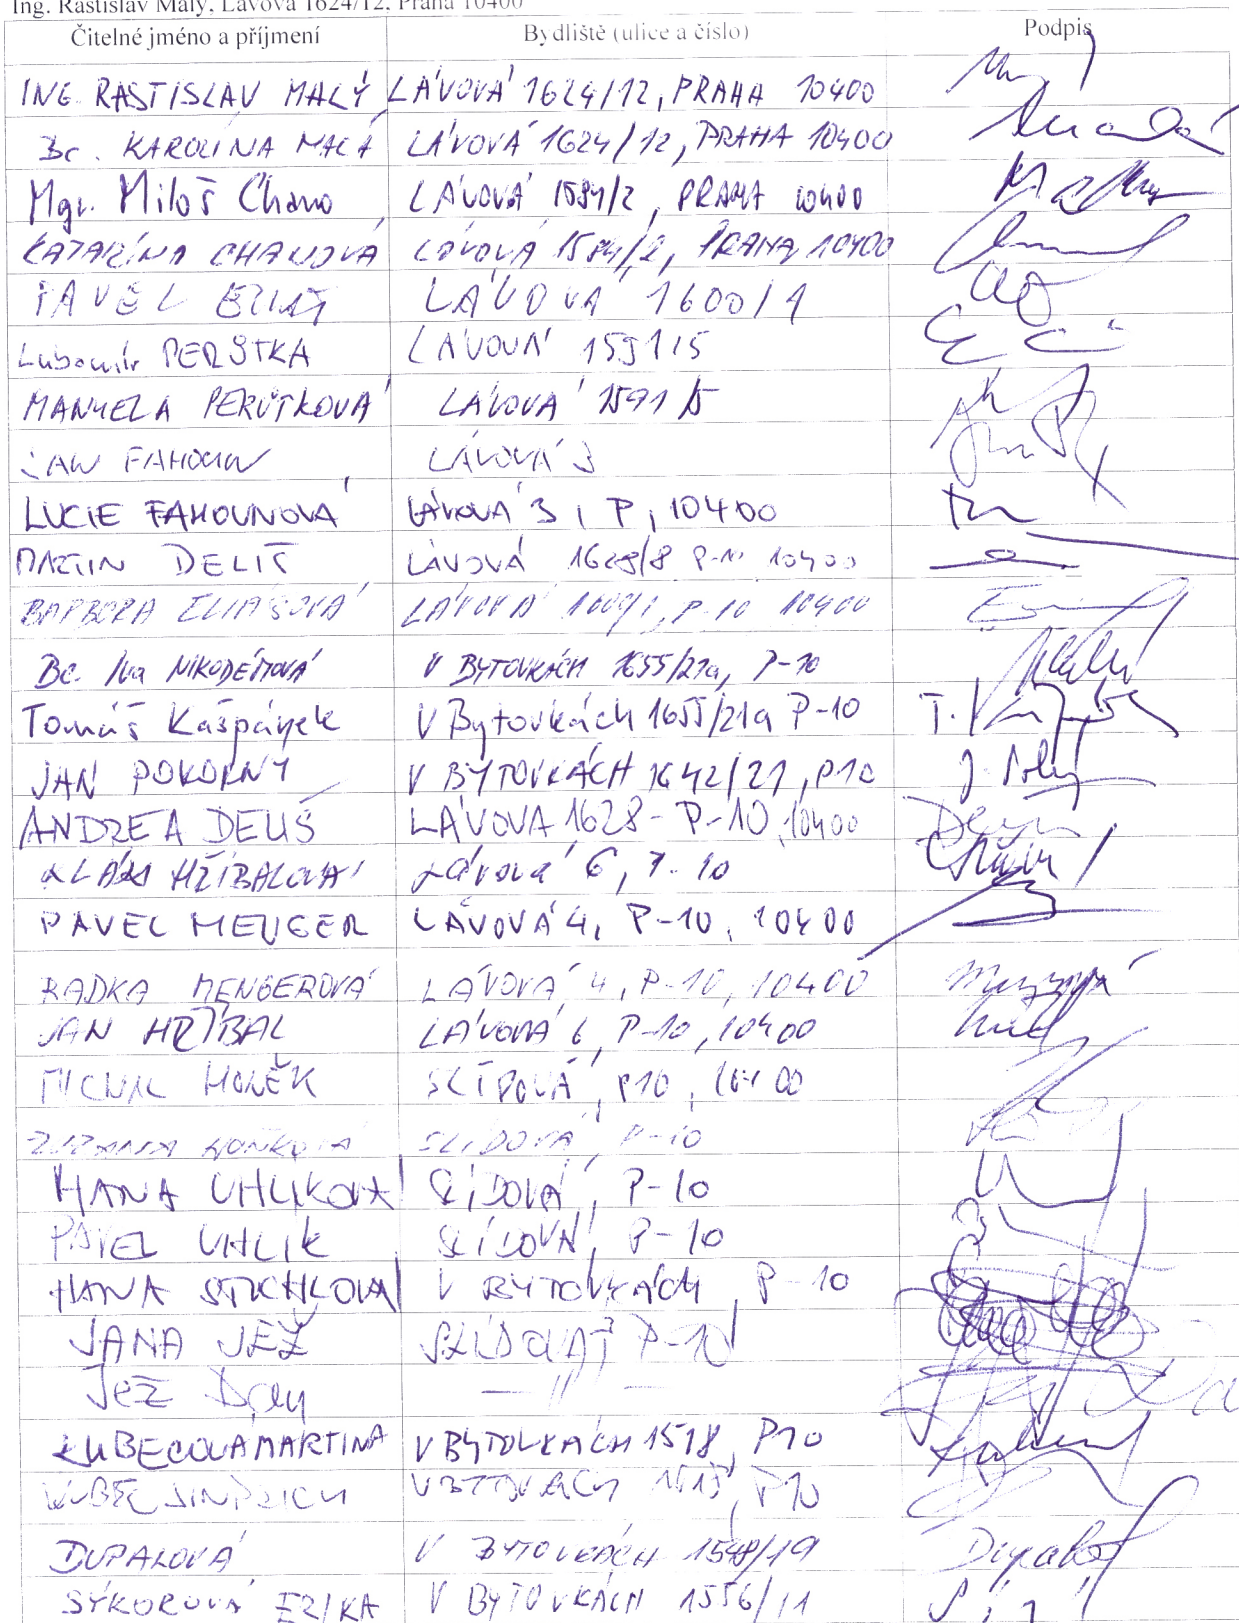 Ing. Rastislav Malý, Lávová 1624/12, Praha 10400
Čitelné jméno a příjmení Bydliště (ulice a číslo) Podpis
ING. RASTISLAV MALÝ LÁVOVÁ 1624/12, PRAHA 10400
Bc. KAROLÍNA MALÁ LÁVOVÁ 1624/12, PRAHA 10400
Mgr. Miloš Chano LÁVOVÁ 1584/2, PRAHA 10400
KATARÍNA CHANOVÁ LÁVOVÁ 1584/2, PRAHA 10400
PAVEL ELIÁŠ LÁVOVÁ 1600/1
Lubomír PERŮTKA LÁVOVÁ 1591/5
MANUELA PERŮTKOVÁ LÁVOVÁ 1591/5
JAN FAHOUN LÁVOVÁ 3
LUCIE FAHOUNOVÁ LÁVOVÁ 3, P, 10400
MARTIN DELIŠ LÁVOVÁ 1628/8 P-10 10400
BARBORA ELIÁŠOVÁ LÁVOVÁ 1600/1, P-10 10400
Bc. Iva NIKODÉMOVÁ V BYTOVKÁCH 1655/21a, P-10
Tomáš Kašpárek V Bytovkách 1655/21a P-10
JAN POKORNÝ V BYTOVKÁCH 1642/21, P10
ANDREA DELIŠ LÁVOVÁ 1628 - P-10, 10400
KLÁRA HŘÍBALOVÁ Lávová 6, P-10
PAVEL MENGER LÁVOVÁ 4, P-10, 10400
RADKA MENGEROVÁ LÁVOVÁ 4, P-10, 10400
JAN HŘÍBAL LÁVOVÁ 6, P-10, 10400
MICHAL HONĚK SLÍDOVÁ, P10, 104 00
ZUZANA HOŇKOVÁ SLÍDOVÁ, P-10
HANA UHLÍKOVÁ SLÍDOVÁ, P-10
PAVEL UHLÍK SLÍDOVÁ, P-10
HANA V BYTOVKÁCH, P-10
JANA JEŽ SLÍDOVÁ, P-10
JEŽ — 11 —
KUBECOVA MARTINA V BYTOVKÁCH 1518, P10
KUBEC JINDŘICH V BYTOVKÁCH P10
DUPALOVÁ V BYTOVKÁCH 1548/19 Dupalová
SÝKOROVÁ ERIKA V BYTOVKÁCH 1556/11